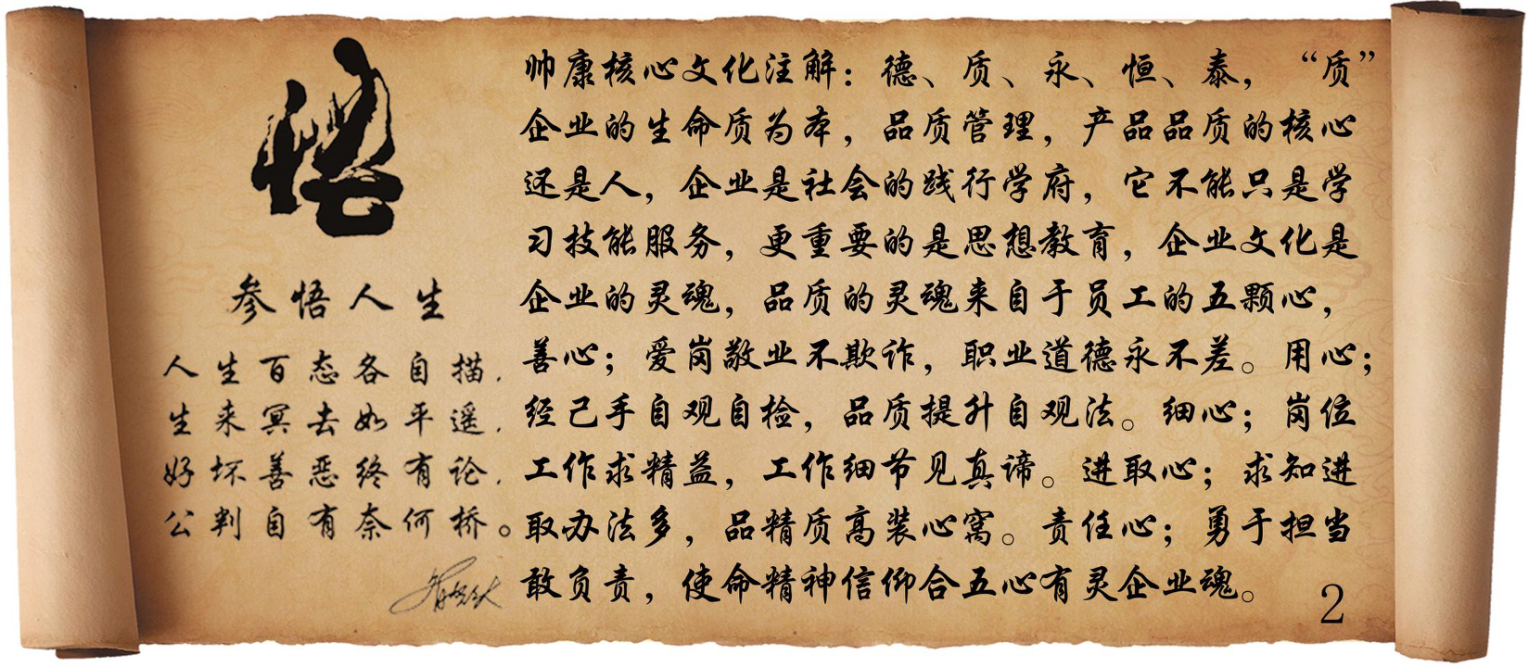 悟
参悟人生
人生百态各自描.
生来冥去如平遥.
好坏善恶终有论.
公判自有奈何桥。
帅康核心文化注解：德、质、永、恒、泰，“质”
企业的生命质为本，品质管理，产品品质的核心
还是人，企业是社会的践行学府，它不能只是学
习技能服务，更重要的是思想教育，企业文化是
企业的灵魂，品质的灵魂来自于员工的五颗心，
善心；爱岗敬业不欺诈，职业道德永不差。用心；
经己手自观自捡，品质提升自观法。细心；岗位
工作求精益，工作细节见真谛。进取心；求知进
取办法多，品精质高装心窝。责任心；勇于担当
敢负责，使命精神信仰合五心有灵企业魂。
2